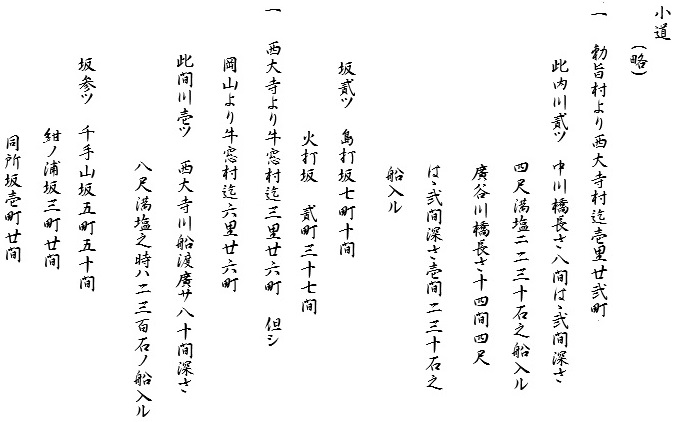 小道
（略）
一　勅旨村より西大寺村迄壱里廿弐町
此内川貳ツ　中川橋長さ八間はゝ弐間深さ
四尺満塩ニ二三十石之船入ル
廣谷川橋長さ十四間四尺
はゝ弐間深さ壱間二三十石之
船入ル
坂貳ツ　島打坂七町十間
火打坂　貳町三十七間
一　西大寺より牛窓村迄三里廿六町　但シ
岡山より牛窓村迄六里廿六町
此間川壱ツ　西大寺川船渡廣サ八十間深さ
八尺満塩之時ハ二三百石ノ船入ル
坂参ツ　千手山坂五町五十間
紺ノ浦坂三町廿間
同所坂壱町廿間